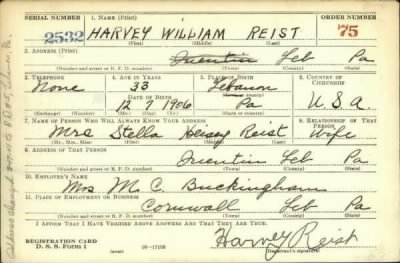 SERIAL NUMBER
1. NAME (Print)
ORDER NUMBER
2532
HARVEY WILLIAM REIST
75
(First) (Middle) (Last)
2. ADDRESS (Print)
Quentin Leb Pa
(Number and street or R. F. D. number) (Town) (County) (State)
3. TELEPHONE
4. AGE IN YEARS
5. PLACE OF BIRTH
6. COUNTRY OF CITIZENSHIP
None
33
Lebanon
DATE OF BIRTH
12 7 1906
Pa
U.S.A.
(Mo.) (Day) (Yr.)
7. NAME OF PERSON WHO WILL ALWAYS KNOW YOUR ADDRESS
8. RELATIONSHIP OF THAT PERSON
Mrs Stella Heisey Reist Wife
(Mr., Mrs., Miss) (First) (Middle) (Last)
9. ADDRESS OF THAT PERSON
Quentin Leb Pa
(Number and street or R. F. D. number) (Town) (County) (State)
10. EMPLOYER'S NAME
Mrs M. C. Buckingham
11. PLACE OF EMPLOYMENT OR BUSINESS
Cornwall Leb Pa
(Number and street or R. F. D. number) (Town) (County) (State)
I AFFIRM THAT I HAVE VERIFIED ABOVE ANSWERS AND THAT THEY ARE TRUE.
REGISTRATION CARD
D. S. S. Form 1
Harvey Reist
(Registrant's signature)